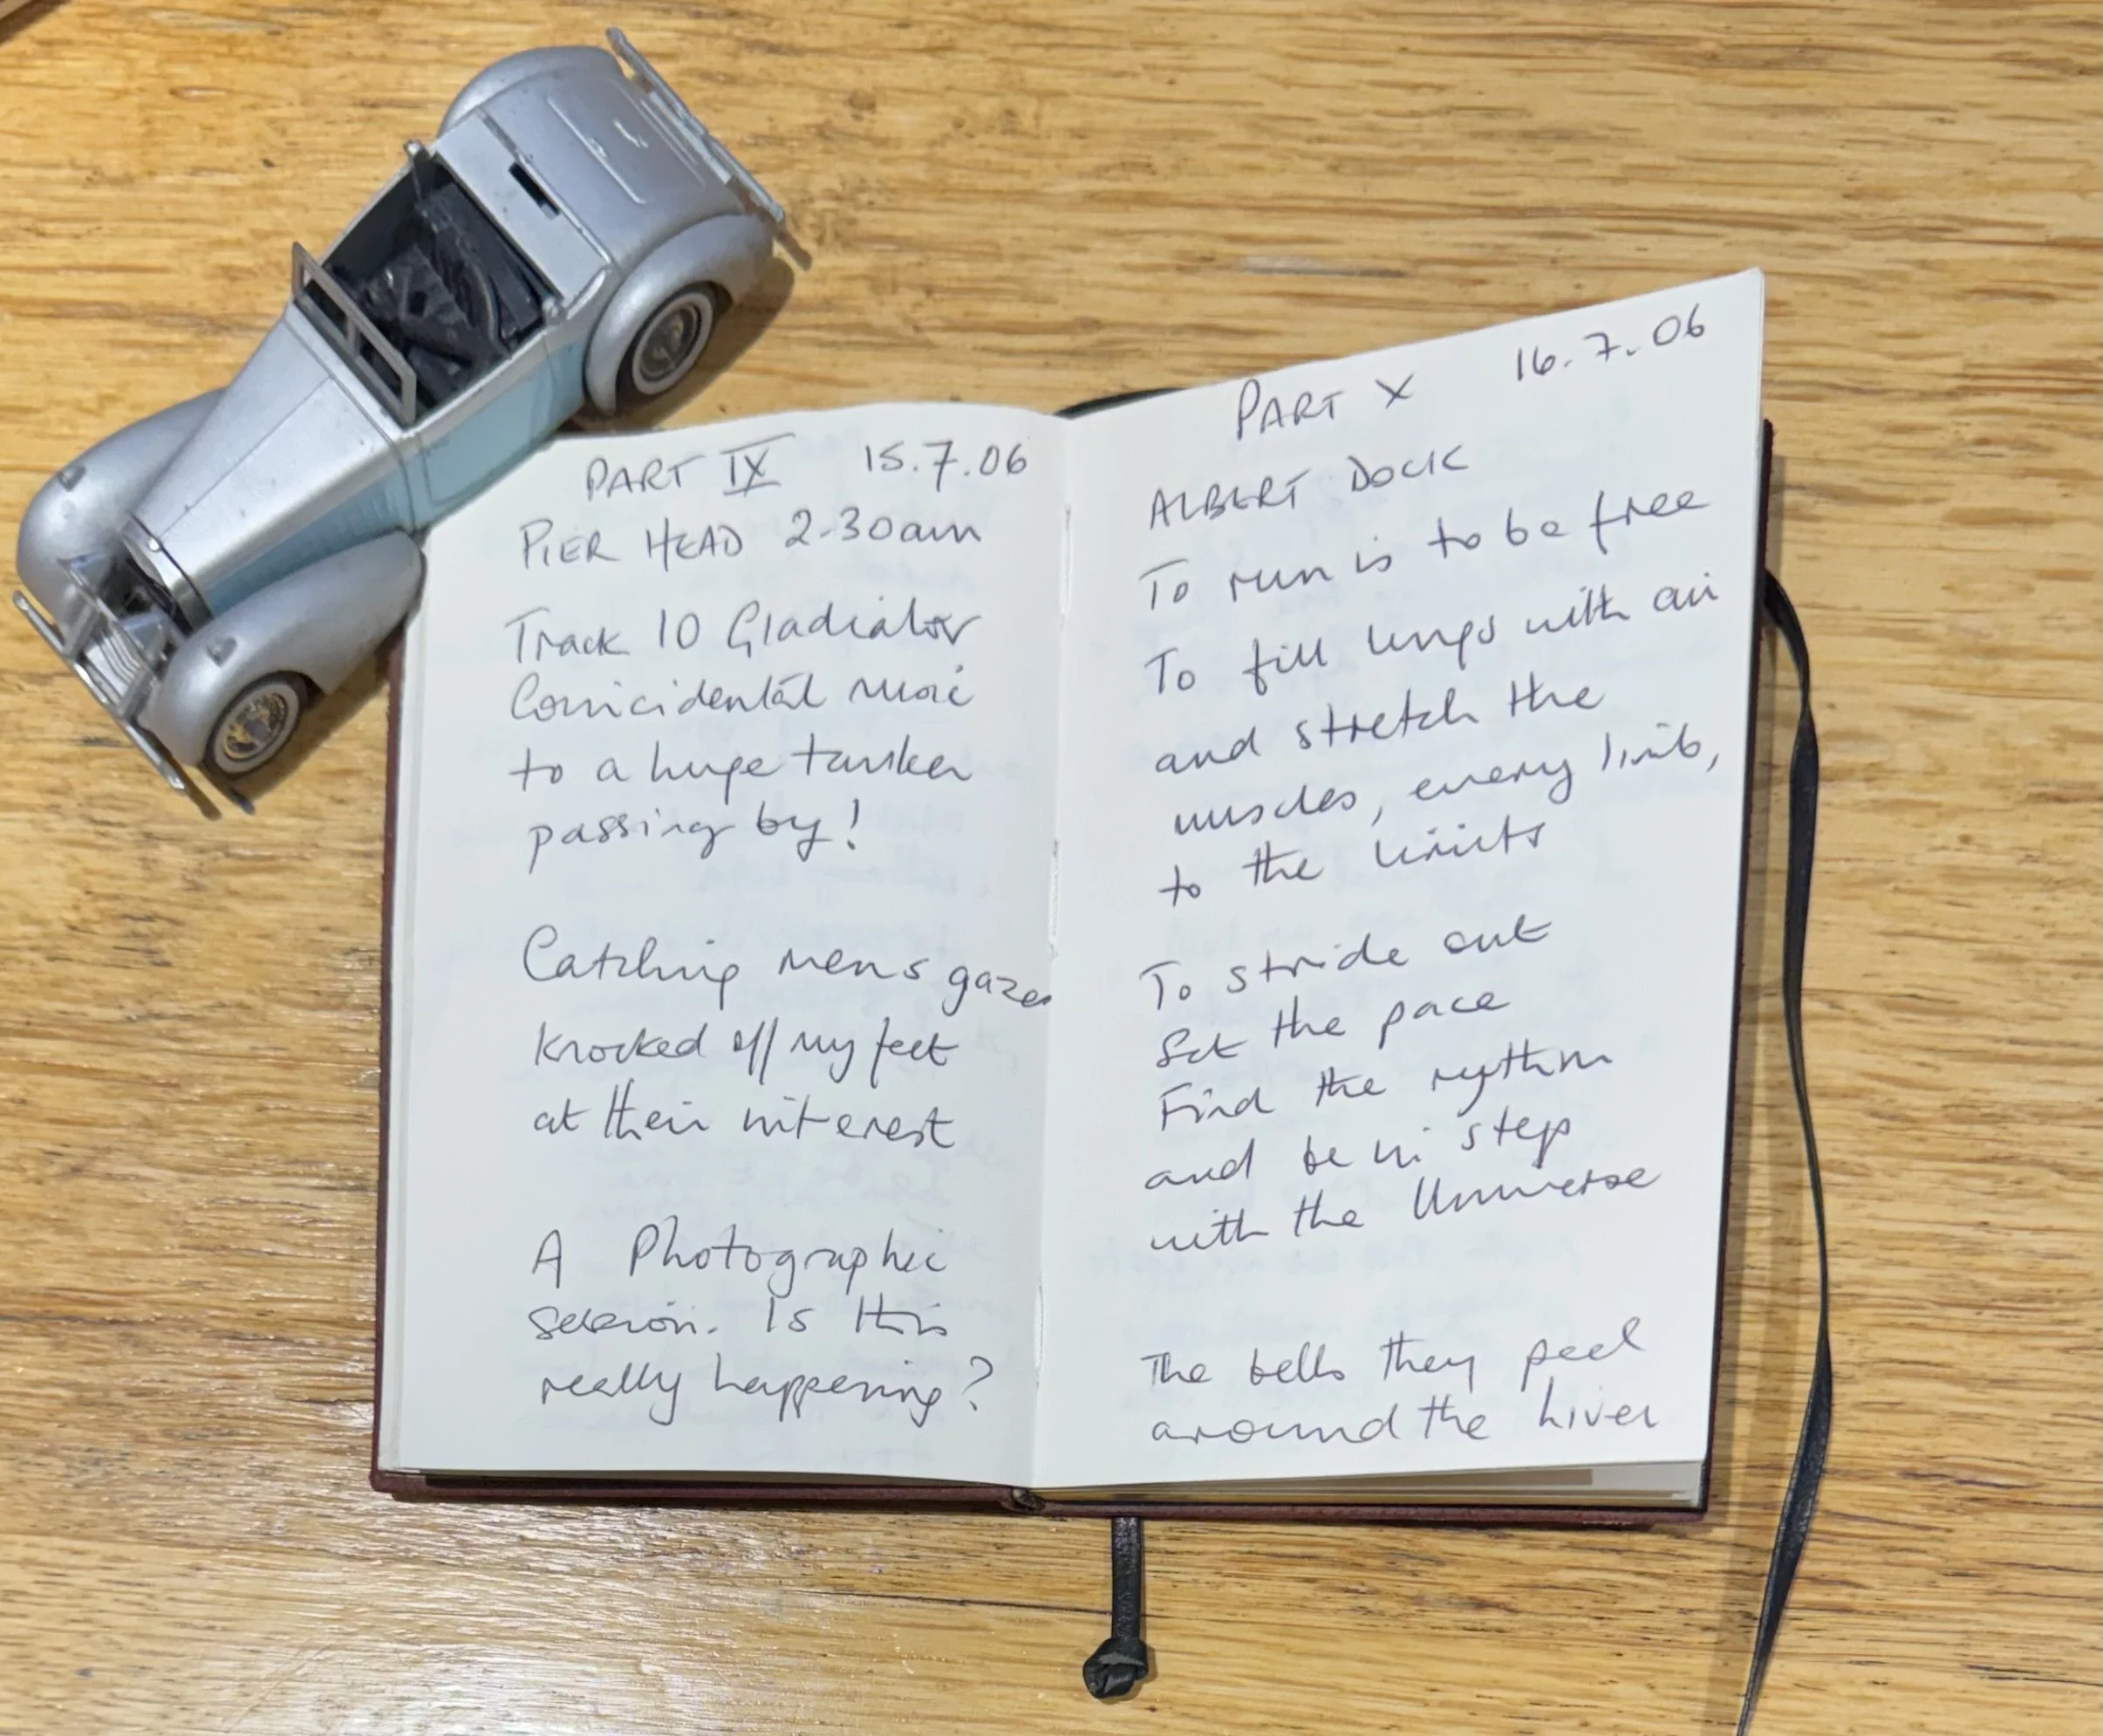 PART IX 15.7.06
PIER HEAD 2-30am
Track 10 Gladiator
Coincidental music
to a huge tanker
passing by!
Catching mens gazes
knocked off my feet
at their interest
A Photographic
session. Is this
really happening?
PART X 16.7.06
ALBERT DOCK
To run is to be free
To fill lungs with air
and stretch the
muscles, every limb,
to the limits
To stride out
Set the pace
Find the rythm
and be in step
with the Universe
The bells they peel
around the Liver